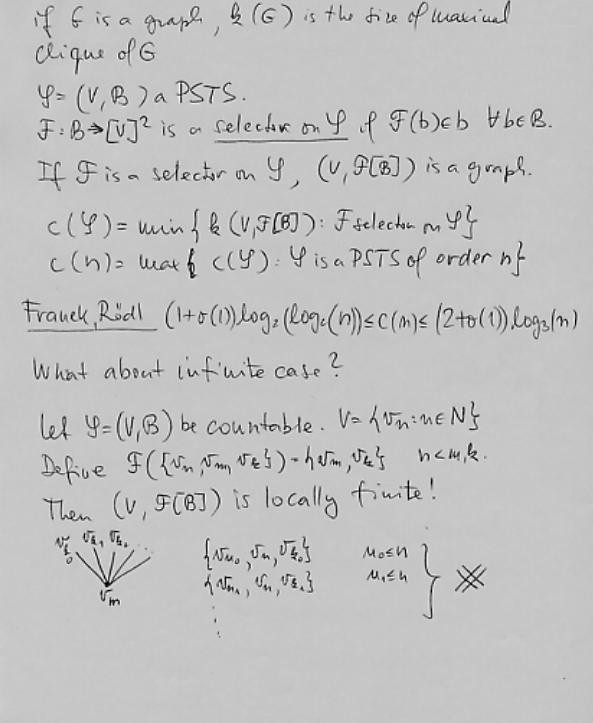 if G is a graph, k(G) is the size of maximal
clique of G
𝒮 = (V, B) a PSTS.
F: B→[V]² is a selector on 𝒮 if F(b)⊂b ∀b∈B.
If F is a selector on 𝒮, (V, F[B]) is a graph.
c(𝒮) = min{k(V, F[B]): F selector on 𝒮}
c(n) = max{c(𝒮): 𝒮 is a PSTS of order n}
Franek, Rödl (1+o(1))log₂(log₂(n)) ≤ c(n) ≤ (2+o(1))log₃(n)
What about infinite case?
Let 𝒮=(V,B) be countable. V={vₙ: n∈N}
Define F({vₙ, vₘ, vₖ}) = {vₘ, vₖ} n<m,k.
Then (V, F[B]) is locally finite!
v_k₀ v_k₁ v_k₂ ... {v_n₀, vₙ, v_k₀} n₀≤n
vₘ {v_n₁, vₙ, v_k₁} n₁≤n